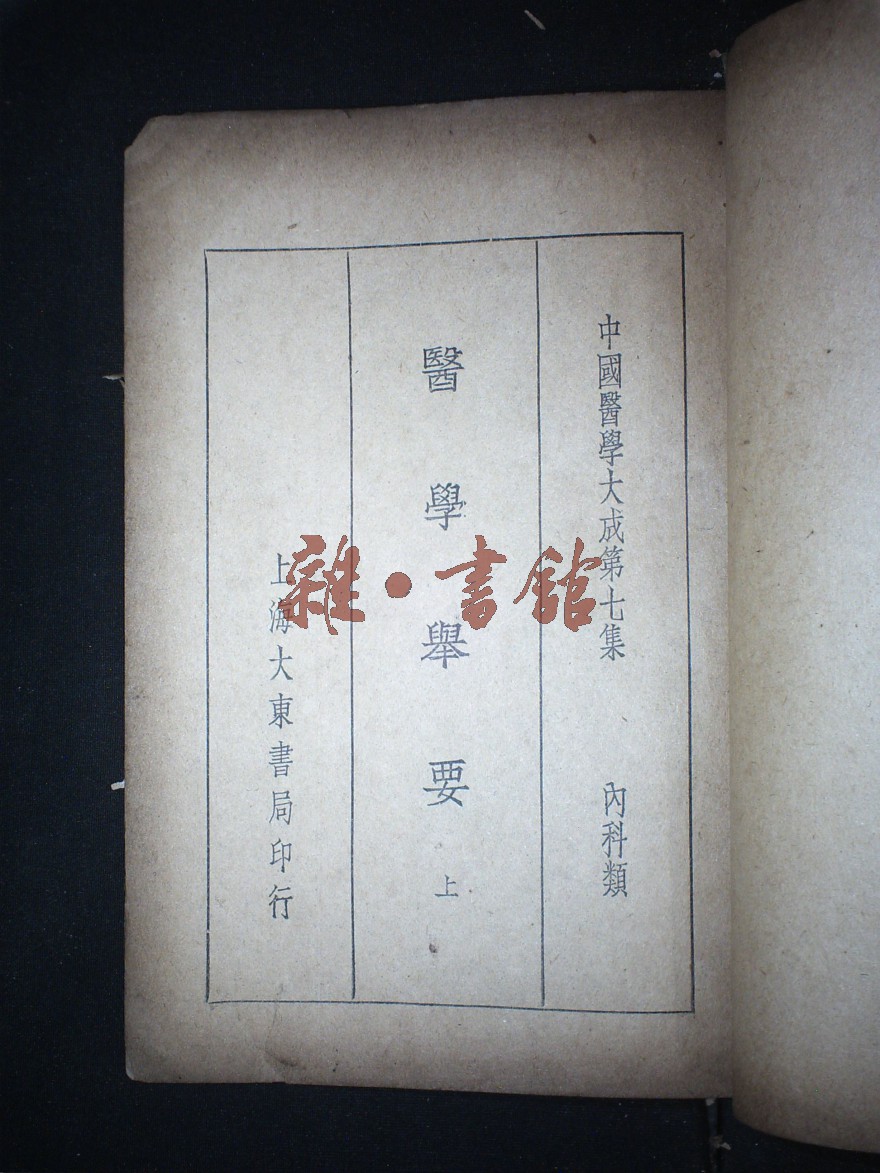 中國醫學大成第七集 內科類
醫學舉要 上
上海大東書局印行
雜·書館